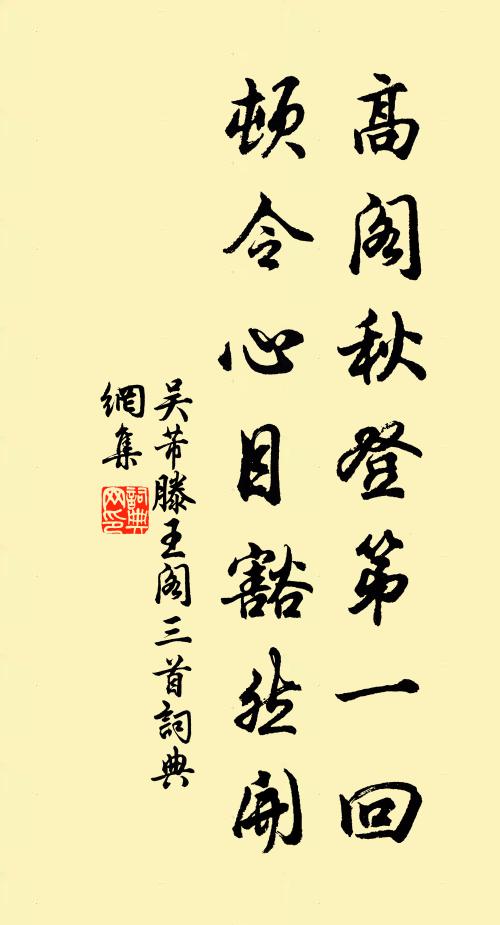 高阁秋登第一回
顿令心目豁然开
吴芾滕王阁三首詞典
網集
詞典
网印